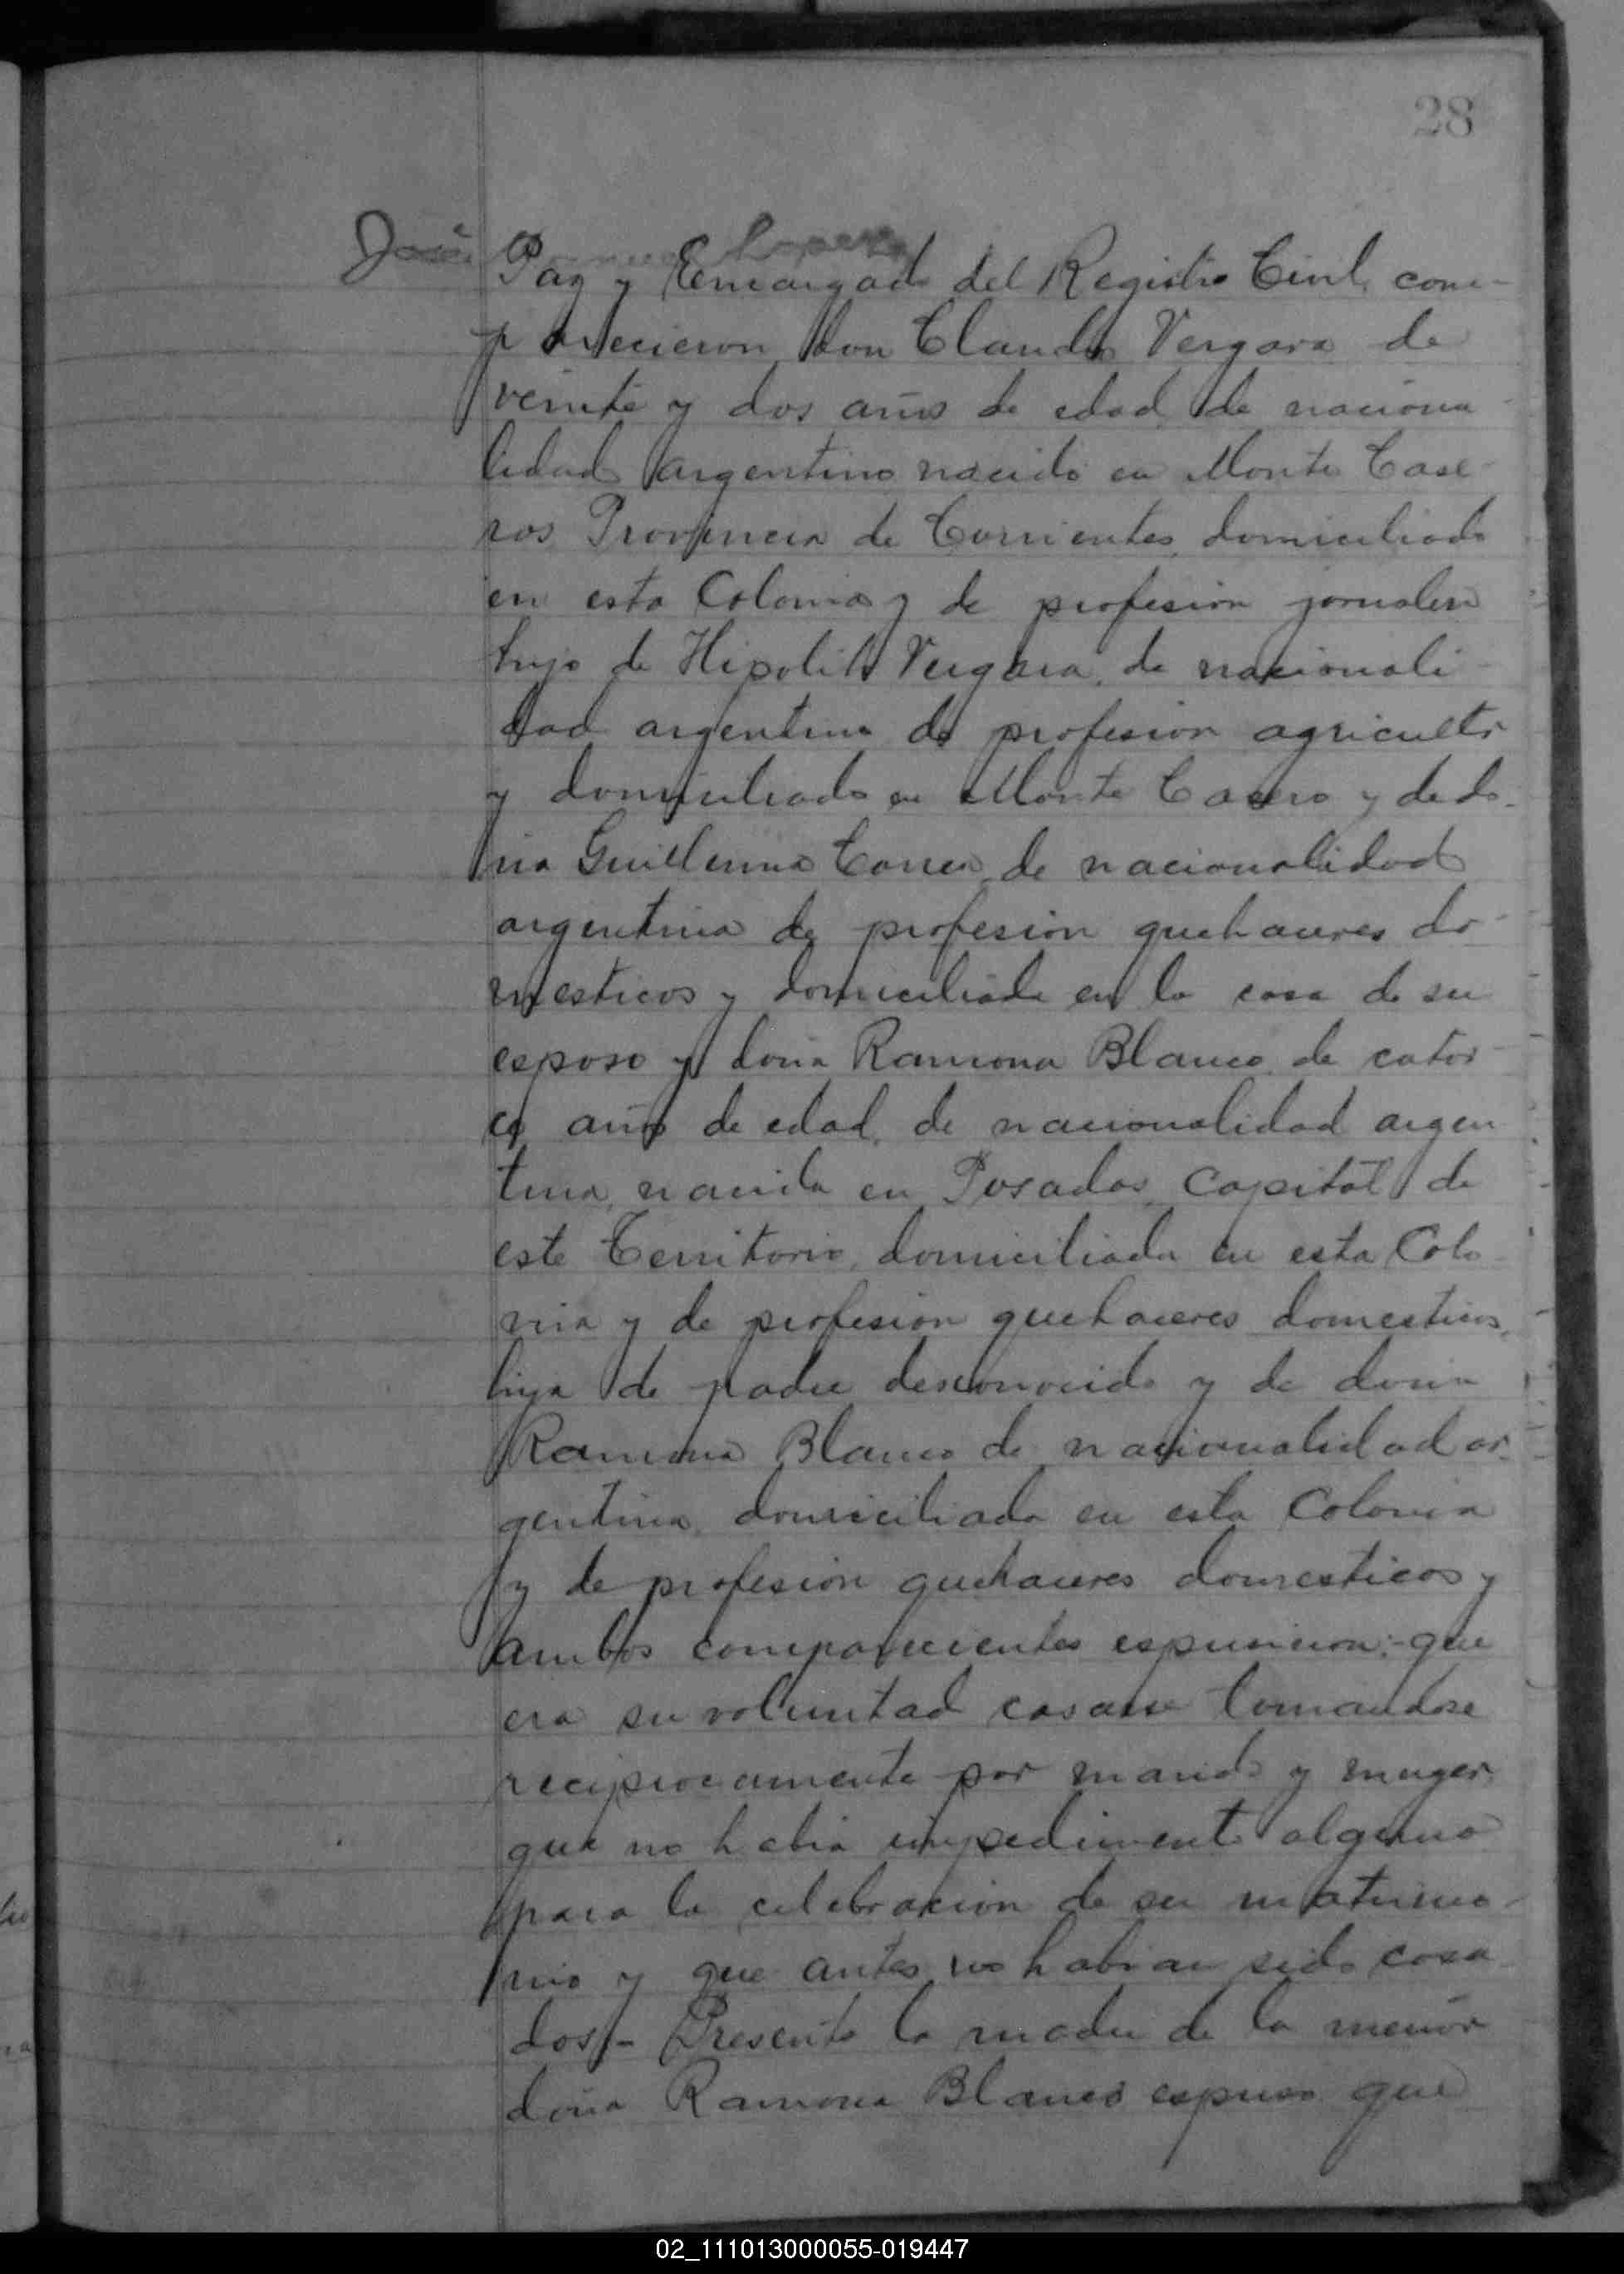 28
José Lopez
Paz y Encargado del Registro Civil, com-
parecieron don Claudio Vergara de
veinte y dos años de edad, de naciona-
lidad argentino nacido en Monte Case-
ros Provincia de Corrientes, domiciliado
en esta Colonia y de profesion jornalero
hijo de Hipolito Vergara, de nacionali-
dad argentino de profesion agricultor
y domiciliado en Monte Casero y de do-
ña Guillerma Correa, de nacionalidad
argentina de profesion quehaceres do-
mesticos y domiciliada en la casa de su
esposo y doña Ramona Blanco, de cator-
ce años de edad, de nacionalidad argen
tina, nacida en Posadas, Capital de
este Territorio, domiciliada en esta Colo-
nia y de profesion quehaceres domesticos,
hija de padre desconocido y de doña
Ramona Blanco de nacionalidad ar-
gentina, domiciliada en esta Colonia
y de profesion quehaceres domesticos y
ambos comparecientes espusieron:-que
era su voluntad casarse tomandose
reciprocamente por marido y muger,
que no habia impedimento alguno
para la celebracion de su matrimo-
nio y que antes no habian sido casa-
dos.- Presente la madre de la menor
doña Ramona Blanco espuso que
02_111013000055-019447